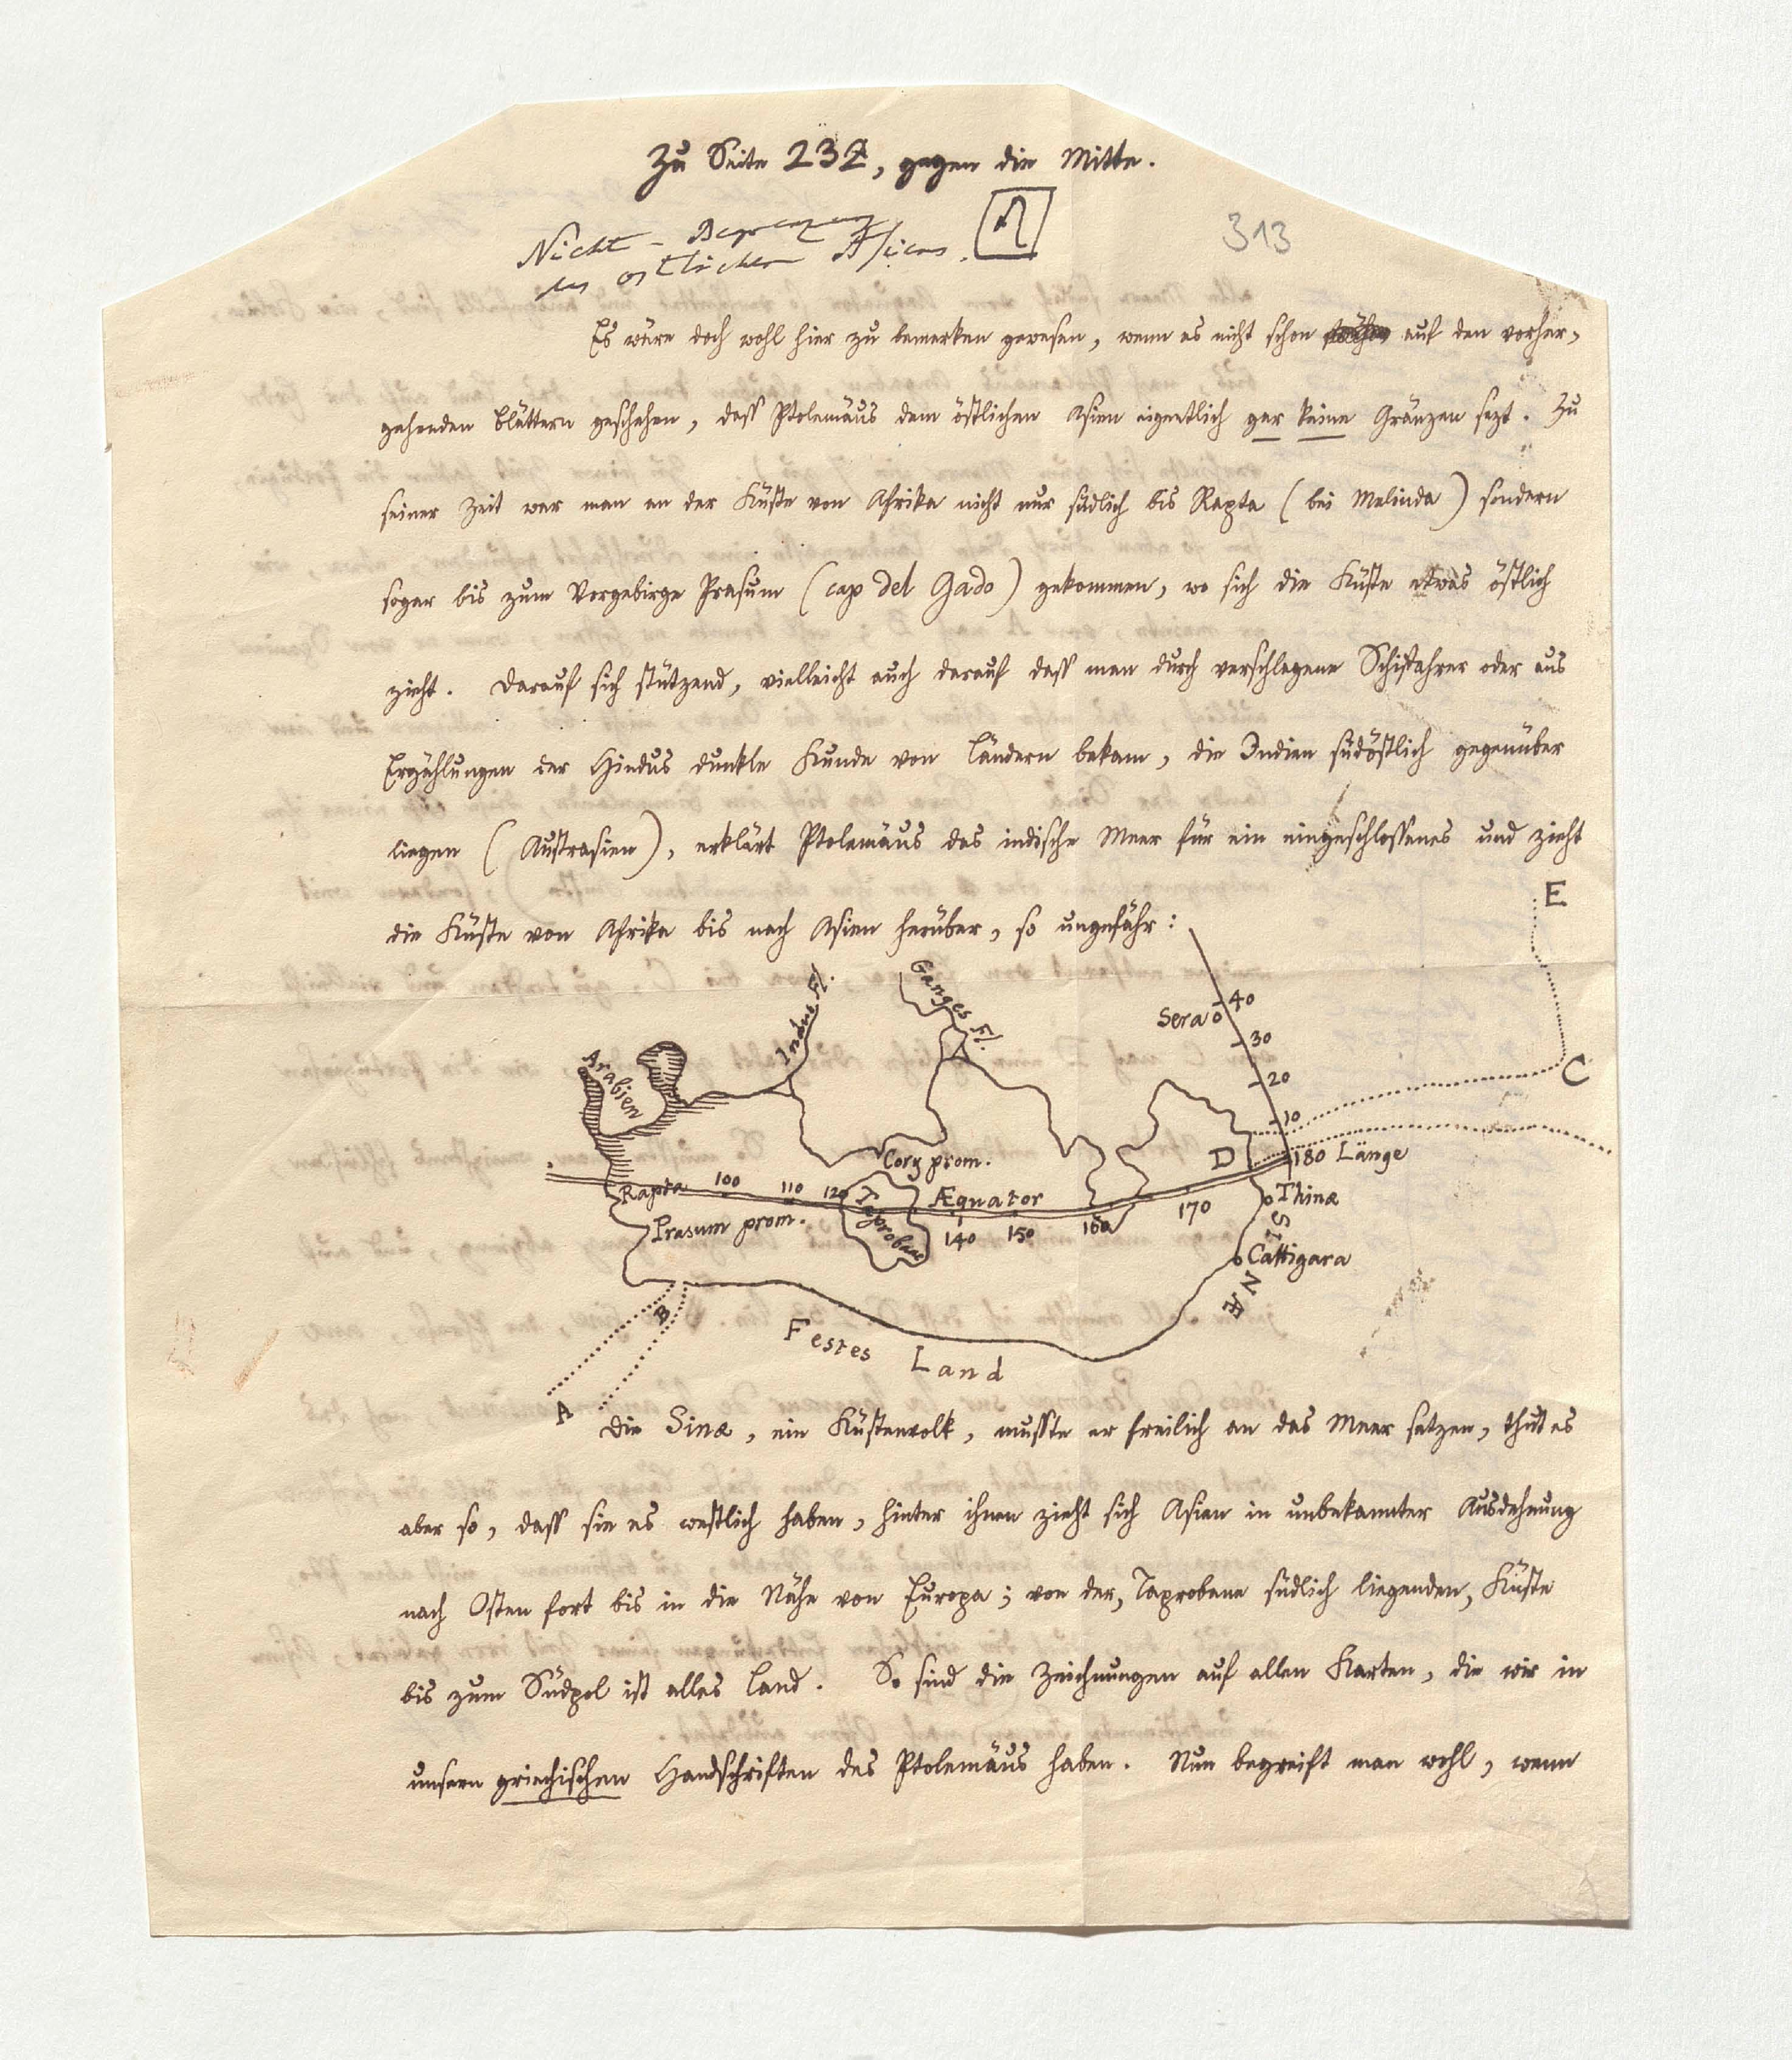 Zu Seite 232, gegen die Mitte.
Nicht - Begrenzung
des östlichen Asiens.
313
Es wäre doch wohl hier zu bemerken gewesen, wenn es nicht schon auf den vorher-
gehenden Blättern geschehen, dass Ptolemäus dem östlichen Asien eigentlich gar keine Gränzen sezt. Zu
seiner Zeit war man an der Küste von Afrika nicht nur südlich bis Rapta (bei Melinda) sondern
sogar bis zum Vorgebirge Prasum (cap del Gado) gekommen, wo sich die Küste etwas östlich
zieht. Darauf sich stützend, vielleicht auch darauf dass man durch verschlagene Schiffahrer oder aus
Erzählungen der Hindus dunkle Kunde von Ländern bekam, die Indien südöstlich gegenüber
liegen (Austrasien), erklärt Ptolemäus das indische Meer für ein eingeschlossenes und zieht
die Küste von Afrika bis nach Asien herüber, so ungefähr:
E
Indus Fl.
Ganges Fl.
Sera
40
30
20
10
C
Arabien
Cory prom.
D
180 Länge
Rapta
100
110
120
Taprobane
Æquator
140
150
160
170
Thinæ
Prasum prom.
SINÆ
Cattigara
B
A
Festes Land
Die Sinæ, ein Küstenvolk, musste er freilich an das Meer setzen, thut es
aber so, dass sie es westlich haben, hinter ihnen zieht sich Asien in unbekannter Ausdehnung
nach Osten fort bis in die Nähe von Europa; von der, Taprobane südlich liegenden, Küste
bis zum Südpol ist alles Land. So sind die Zeichnungen auf allen Karten, die wir in
unsern griechischen Handschriften des Ptolemäus haben. Nun begreift man wohl, wenn